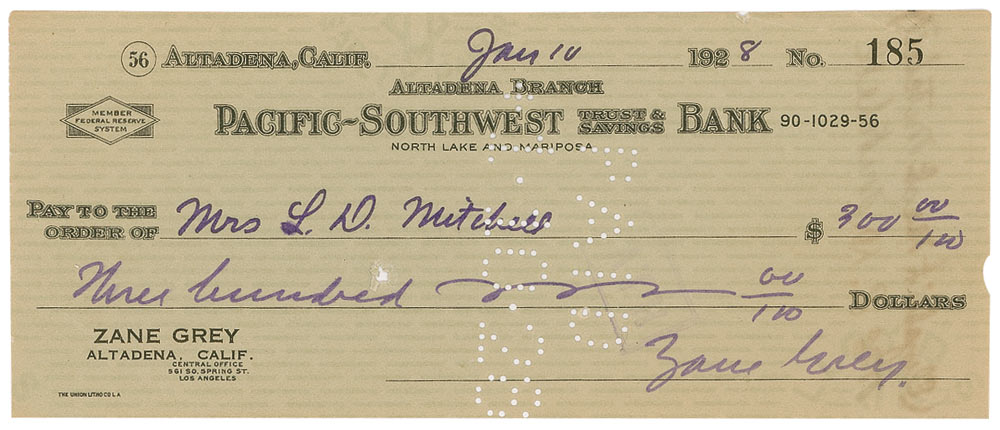 56 ALTADENA, CALIF. Jan 10 1928 No. 185
ALTADENA BRANCH
MEMBER
FEDERAL RESERVE
SYSTEM
PACIFIC-SOUTHWEST TRUST & SAVINGS BANK 90-1029-56
NORTH LAKE AND MARIPOSA
PAY TO THE
ORDER OF Mrs L. D. Mitchell $ 300 00/100
Three hundred 00/100 DOLLARS
ZANE GREY
ALTADENA, CALIF.
CENTRAL OFFICE
561 SO. SPRING ST.
LOS ANGELES
Zane Grey.
THE UNION LITHO CO L A